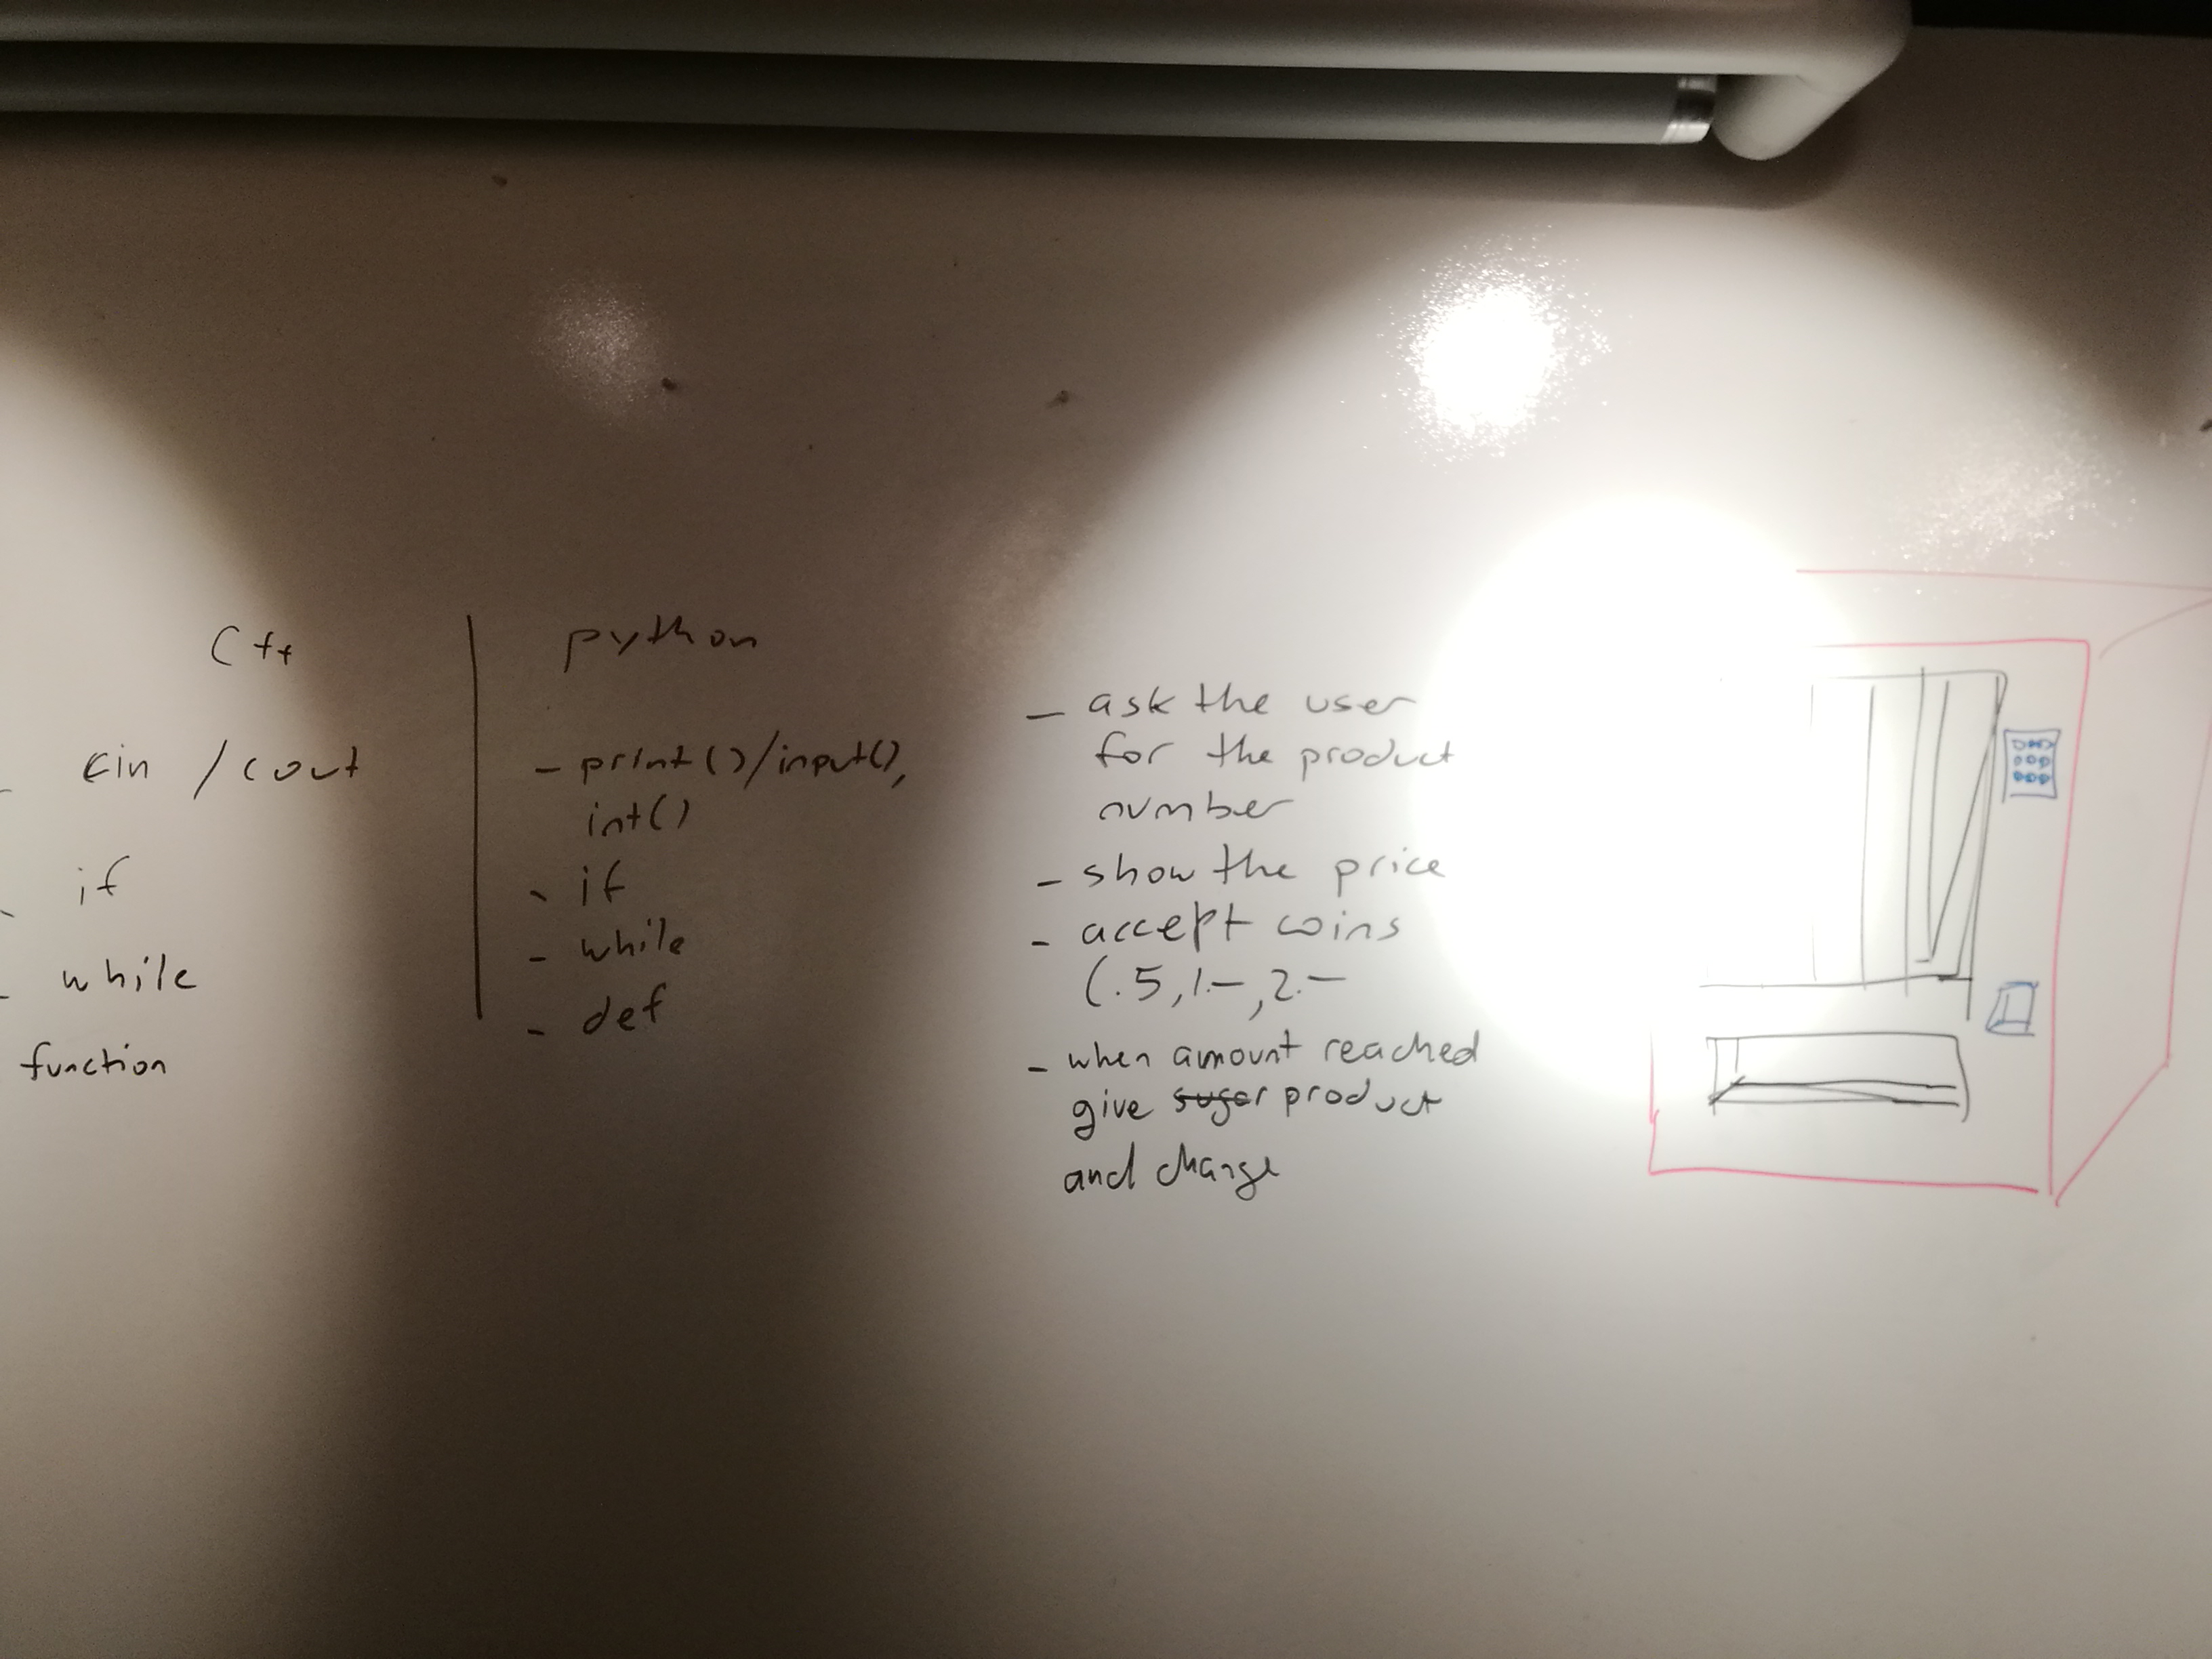 C++
cin / cout
if
while
function
python
- print()/input(),
int()
- if
- while
- def
- ask the user
for the product
number
- show the price
- accept coins
(.5, 1.-, 2.-
- when amount reached
give sugar product
and change